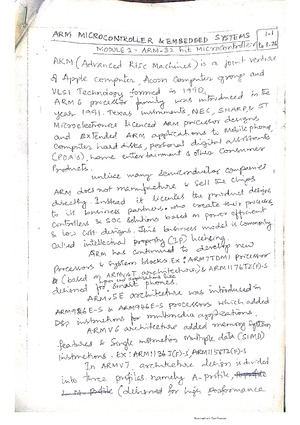 ARM MICROCONTROLLER & EMBEDDED SYSTEMS
MODULE 1 - ARM-32 bit Microcontroller
ARM (Advanced RISC Machines) is a joint venture
of Apple computer, Acorn Computer group and
VLSI Technology formed in 1990.
ARM6 processor family was introduced in the
year 1991. Texas instruments, NEC, SHARP & ST
Microelectronics licenced ARM processor designs
and Extended ARM applications to Mobile phones,
Computer hard disks, personal digital assistants
(PDA's), home entertainment & other Consumer
Products.
unlike many semiconductor companies
ARM does not manufacture & sell the chips
directly. Instead it licenses the product designs
to its business partners who create their processors
Controllers & SOC solutions based on power efficient
& low cost designs. This business model is commonly
called intellectual property (IP) licensing
ARM has continued to develop new
Processors & System blocks Ex: ARM7TDMI processor
& (based on ARMv4T architecture) & ARM1176TZ(F)-S
designed for smart phones.
ARMv5E architecture was introduced in
ARM926E-S & ARM946E-S processors which added
DSP instructions for multimedia applications.
ARMv6 architecture added memory system
features & Single instruction Multiple data (SIMD)
instructions. Ex: ARM1136J(F)-S, ARM1156T2(F)-S
In ARMv7 architecture design is divided
into three profiles namely A-profile,
(designed for high performance